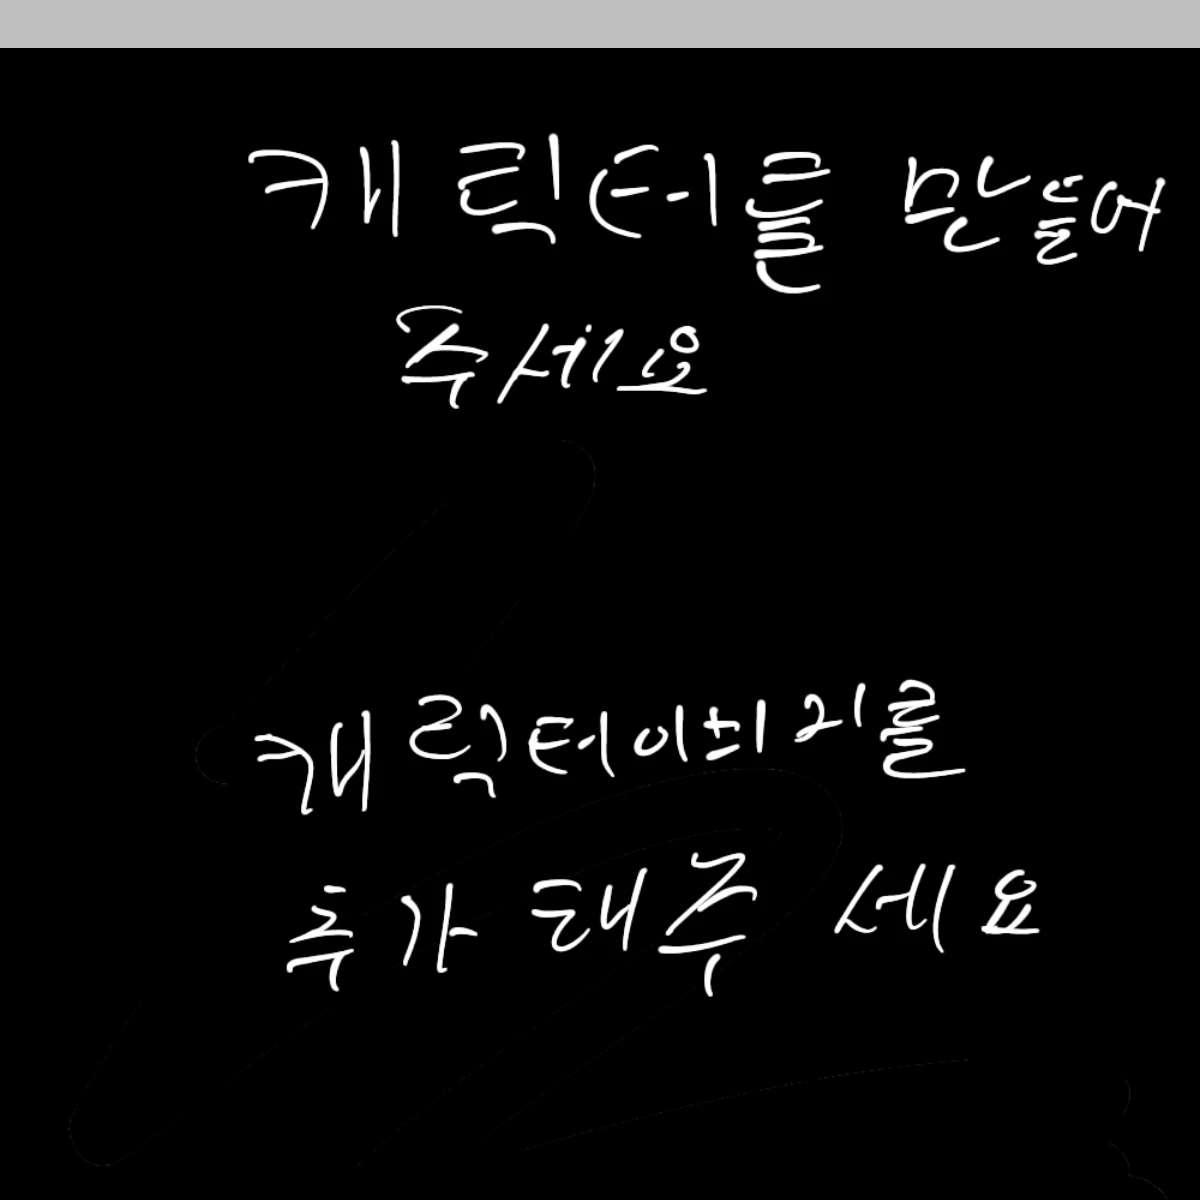 캐릭터를 만들어
주세요
캐릭터이미지를
추가 태주 세요